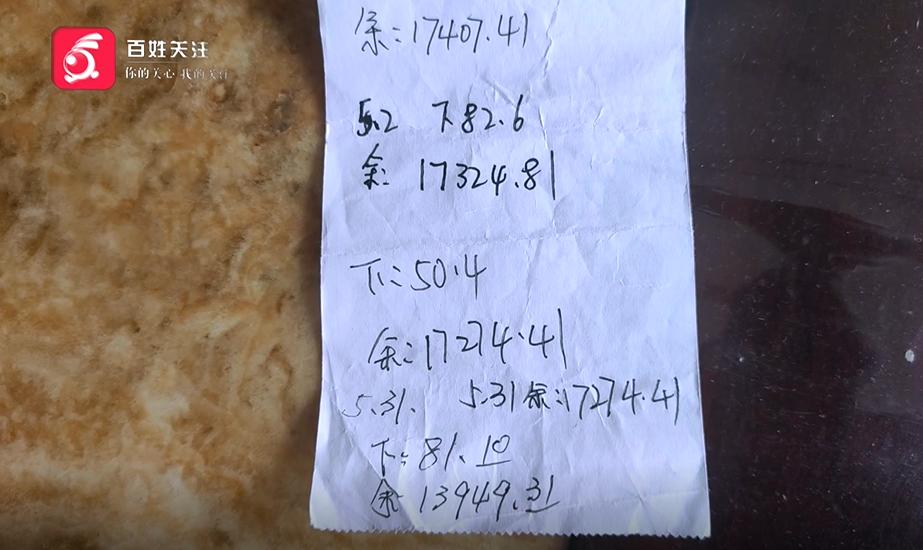 百姓关注
你的关心 我的关注
余：17407.41
下82.6
余：17324.81
下：50.4
余：17274.41
5.31. 5.31余：17274.41
下：81.10
余：13949.31